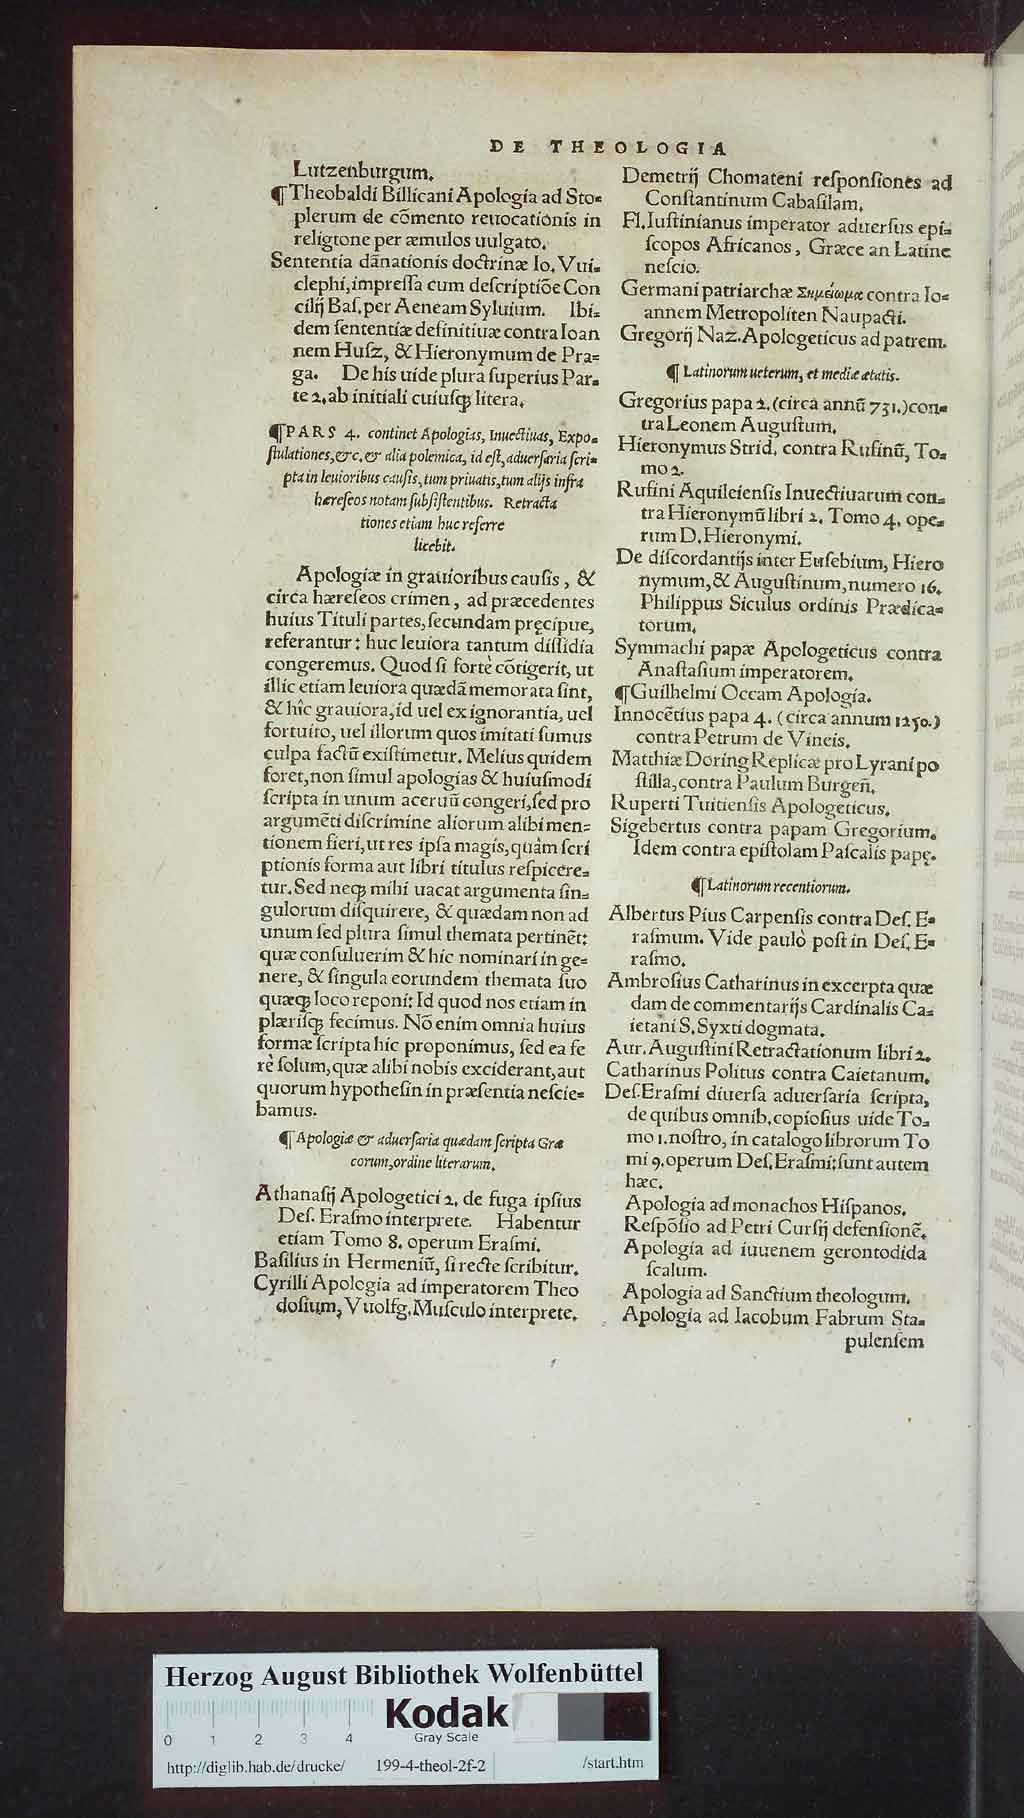 DE THEOLOGIA
Lutzenburgum.
¶ Theobaldi Billicani Apologia ad Sto-
plerum de cōmento reuocationis in
religione per æmulos uulgato.
Sententia dānationis doctrinæ Io. Vui-
clephi, impreſſa cum deſcriptiōe Con
cilij Baſ. per Aeneam Syluium. Ibi-
dem ſententiæ definitiuæ contra Ioan
nem Huſz, & Hieronymum de Pra-
ga. De his uide plura ſuperius Par-
te 2. ab initiali cuiuſꝗ litera.
¶ PARS 4. continet Apologias, Inuectiuas, Expo-
ſtulationes, &c. & alia polemica, id eſt, aduerſaria ſcri-
pta in leuioribus cauſis, tum priuatis, tum alijs infra
hæreſeos notam ſubſiſtentibus. Retracta
tiones etiam huc referre
licebit.
Apologiæ in grauioribus cauſis, &
circa hæreſeos crimen, ad præcedentes
huius Tituli partes, ſecundam pręcipue,
referantur: huc leuiora tantum diſſidia
congeremus. Quod ſi forte cōtigerit, ut
illic etiam leuiora quædā memorata ſint,
& hîc grauiora, id uel ex ignorantia, uel
fortuito, uel illorum quos imitati ſumus
culpa factū exiſtimetur. Melius quidem
foret, non ſimul apologias & huiuſmodi
ſcripta in unum aceruū congeri, ſed pro
argumēti diſcrimine aliorum alibi men-
tionem fieri, ut res ipſa magis, quàm ſcri
ptionis forma aut libri titulus reſpicere-
tur. Sed neꝗ mihi uacat argumenta ſin-
gulorum diſquirere, & quædam non ad
unum ſed plura ſimul themata pertinēt:
quæ conſuluerim & hic nominari in ge-
nere, & ſingula eorundem themata ſuo
quæꝗ loco reponi: Id quod nos etiam in
plæriſꝗ fecimus. Nō enim omnia huius
formæ ſcripta hic proponimus, ſed ea fe
rè ſolum, quæ alibi nobis exciderant, aut
quorum hypotheſin in præſentia neſcie-
bamus.
¶ Apologiæ & aduerſaria quædam ſcripta Græ
corum, ordine literarum.
Athanaſij Apologetici 2. de fuga ipſius
Deſ. Eraſmo interprete. Habentur
etiam Tomo 8. operum Eraſmi.
Baſilius in Hermeniū, ſi recte ſcribitur.
Cyrilli Apologia ad imperatorem Theo
doſium, Vuolfg. Muſculo interprete.
Demetrij Chomateni reſponſiones ad
Conſtantinum Cabaſilam.
Fl. Iuſtinianus imperator aduerſus epi-
ſcopos Africanos, Græce an Latine
neſcio.
Germani patriarchæ Σημείωμα contra Io-
annem Metropoliten Naupacti.
Gregorij Naz. Apologeticus ad patrem.
¶ Latinorum ueterum, et mediæ ætatis.
Gregorius papa 2. (circa annū 731.) con-
tra Leonem Auguſtum.
Hieronymus Strid. contra Rufinū, To-
mo 2.
Rufini Aquileienſis Inuectiuarum con-
tra Hieronymū libri 2. Tomo 4. ope-
rum D. Hieronymi.
De diſcordantijs inter Euſebium, Hiero
nymum, & Auguſtinum, numero 16.
Philippus Siculus ordinis Prædica-
torum.
Symmachi papæ Apologeticus contra
Anaſtaſium imperatorem.
¶ Guilhelmi Occam Apologia.
Innocētius papa 4. (circa annum 1250.)
contra Petrum de Vineis.
Matthiæ Doring Replicæ pro Lyrani po
ſtilla, contra Paulum Burgen̄.
Ruperti Tuitienſis Apologeticus.
Sigebertus contra papam Gregorium.
Idem contra epiſtolam Paſcalis papę.
¶ Latinorum recentiorum.
Albertus Pius Carpenſis contra Deſ. E-
raſmum. Vide paulò poſt in Deſ. E-
raſmo.
Ambroſius Catharinus in excerpta quæ
dam de commentarijs Cardinalis Ca-
ietani S. Syxti dogmata.
Aur. Auguſtini Retractationum libri 2.
Catharinus Politus contra Caietanum.
Deſ. Eraſmi diuerſa aduerſaria ſcripta,
de quibus omnib. copioſius uide To-
mo 1. noſtro, in catalogo librorum To
mi 9. operum Deſ. Eraſmi: ſunt autem
hæc.
Apologia ad monachos Hiſpanos.
Reſpōſio ad Petri Curſij defenſionē.
Apologia ad iuuenem gerontodida
ſcalum.
Apologia ad Sanctium theologum.
Apologia ad Iacobum Fabrum Sta-
pulenſem
Herzog August Bibliothek Wolfenbüttel
Kodak
Gray Scale
0 1 2 3 4
http://diglib.hab.de/drucke/ 199-4-theol-2f-2 /start.htm